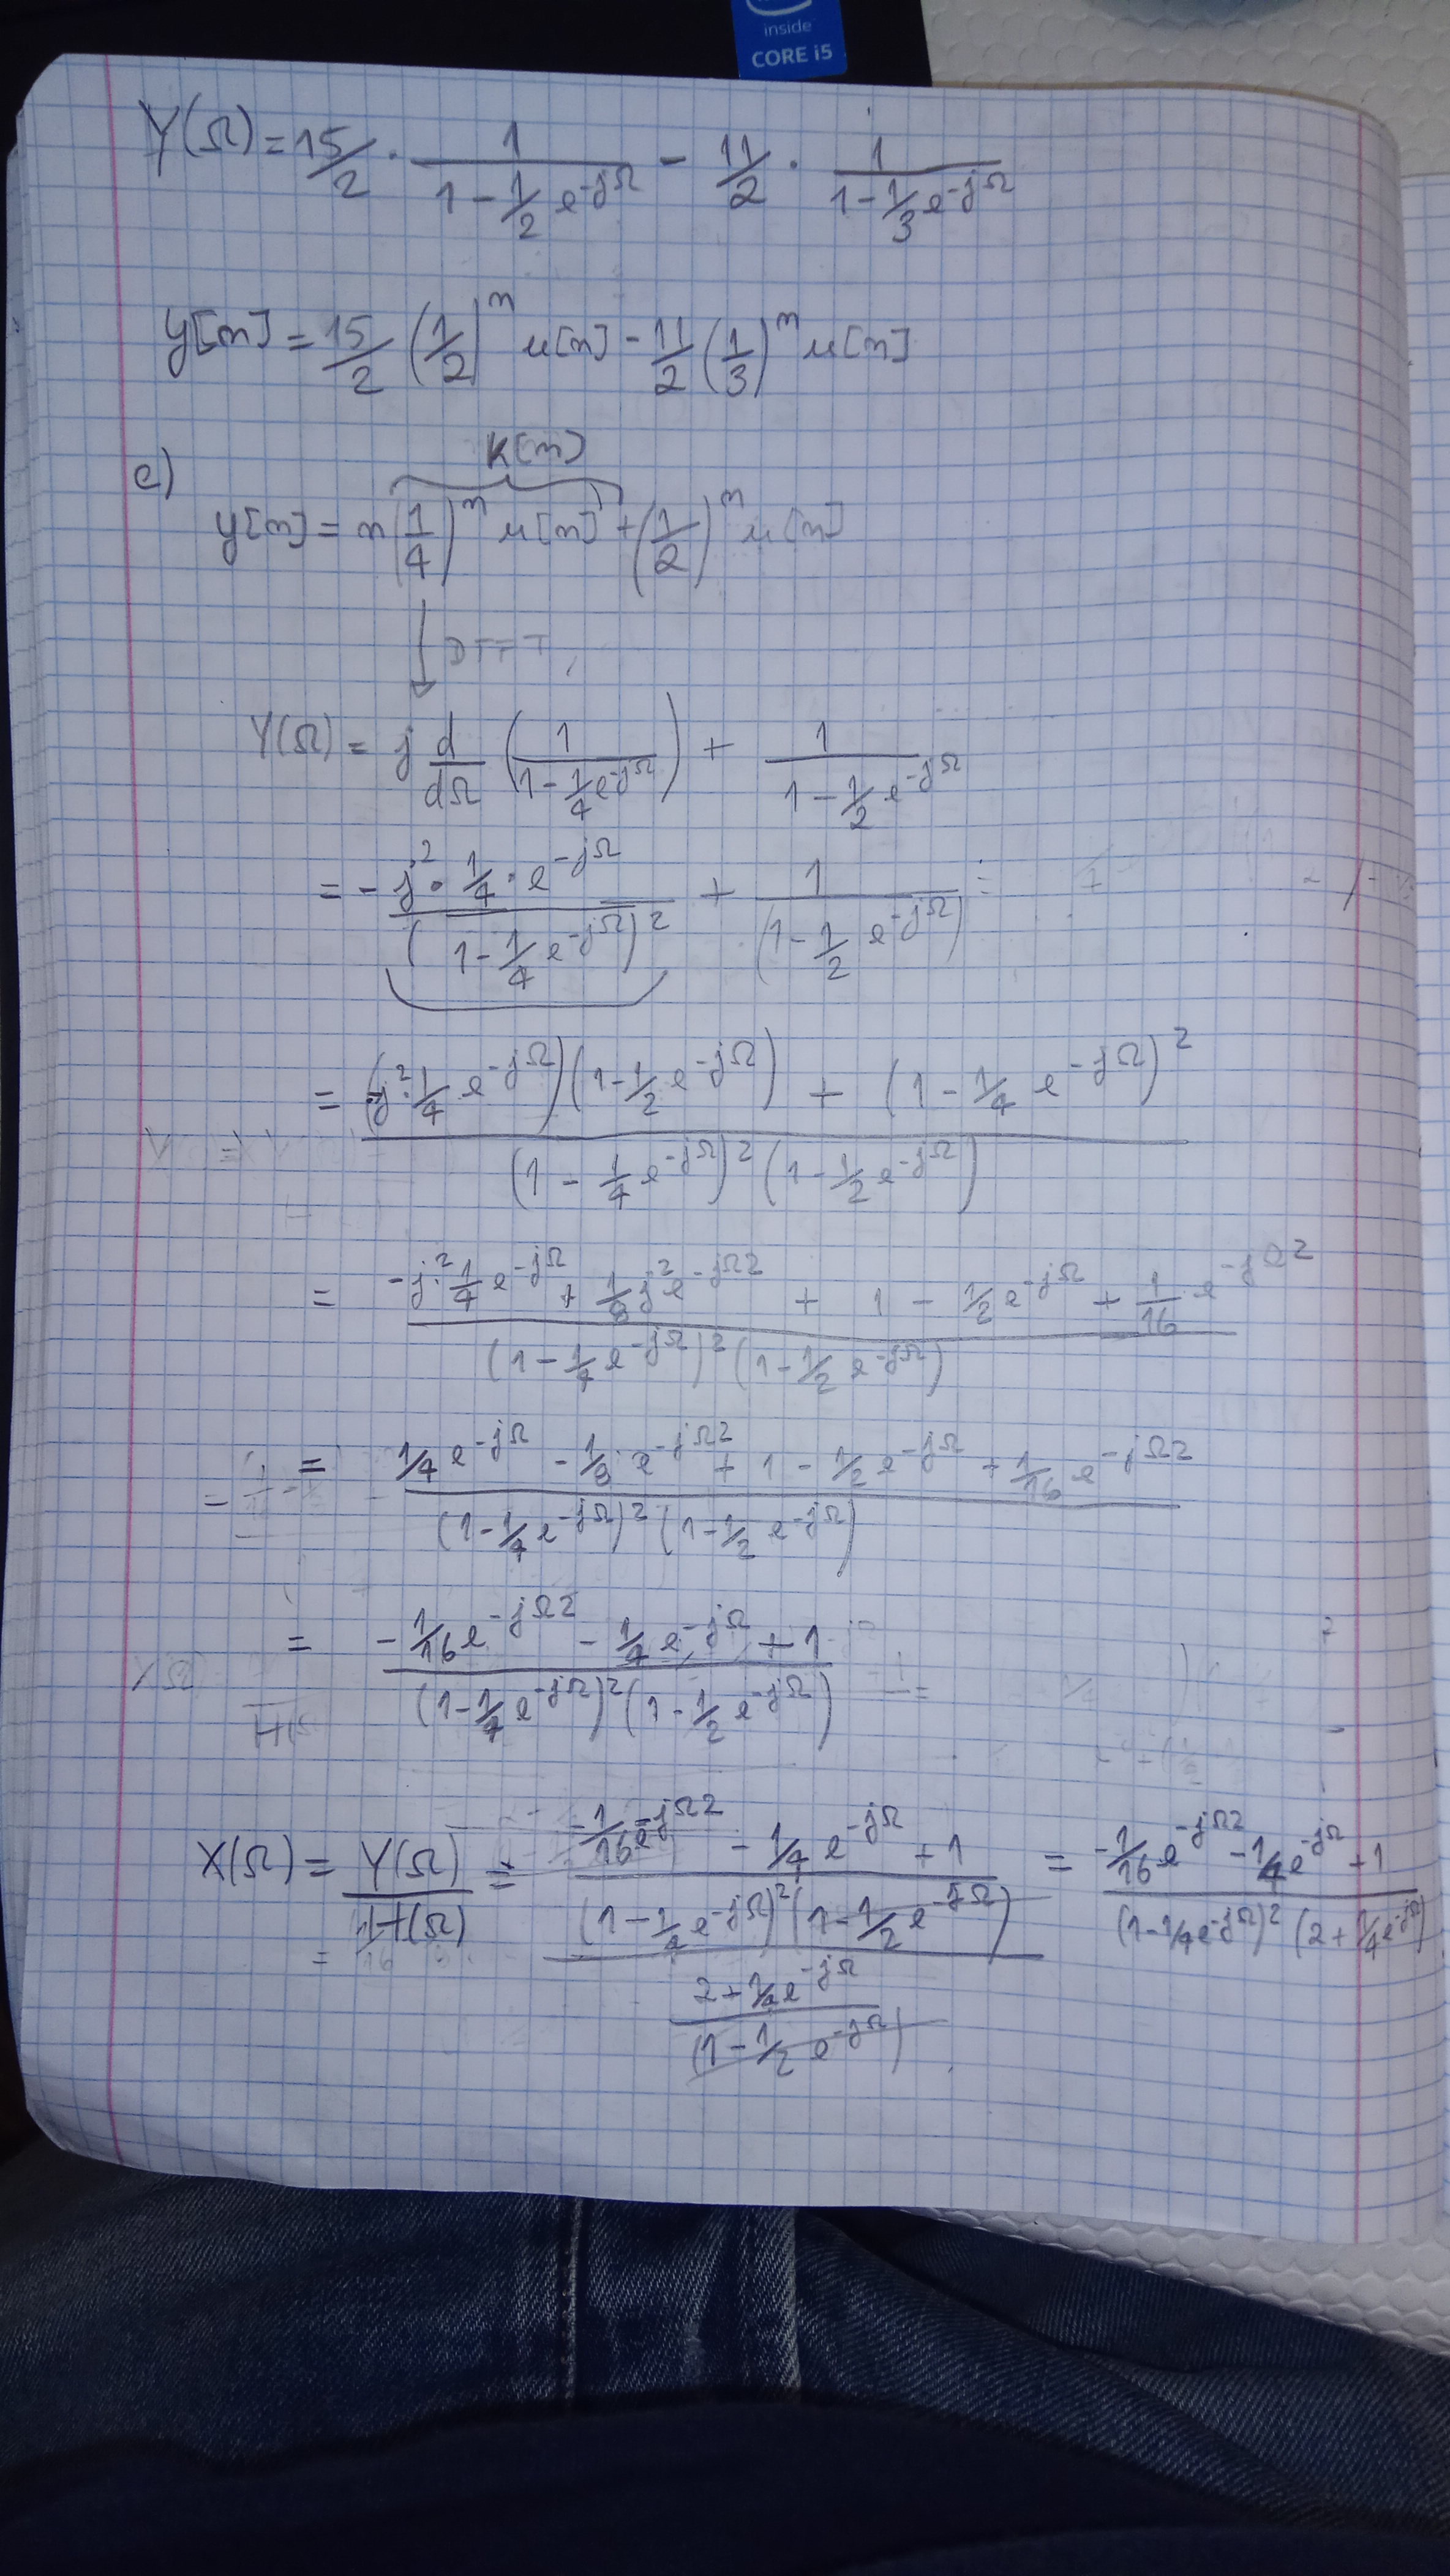 inside
CORE i5
Y(Ω) = 15/2 · 1/(1 - 1/2 e^{-jΩ}) - 11/2 · 1/(1 - 1/3 e^{-jΩ})
y[n] = 15/2 (1/2)^n u[n] - 11/2 (1/3)^n u[n]
K[n]
c)
y[n] = n(1/4)^n u[n] + (1/2)^n u[n]
DTFT
Y(Ω) = j d/dΩ (1/(1 - 1/4 e^{-jΩ})) + 1/(1 - 1/2 e^{-jΩ})
= - j² · 1/4 · e^{-jΩ}/(1 - 1/4 e^{-jΩ})² + 1/(1 - 1/2 e^{-jΩ}) =
= ((-j² · 1/4 e^{-jΩ})(1 - 1/2 e^{-jΩ}) + (1 - 1/4 e^{-jΩ})²)/((1 - 1/4 e^{-jΩ})² (1 - 1/2 e^{-jΩ}))
= (-j² · 1/4 e^{-jΩ} + 1/8 j² e^{-jΩ2} + 1 - 1/2 e^{-jΩ} + 1/16 e^{-jΩ2})/((1 - 1/4 e^{-jΩ})² (1 - 1/2 e^{-jΩ}))
= (1/4 e^{-jΩ} - 1/8 e^{-jΩ2} + 1 - 1/2 e^{-jΩ} + 1/16 e^{-jΩ2})/((1 - 1/4 e^{-jΩ})² (1 - 1/2 e^{-jΩ}))
= (-1/16 e^{-jΩ2} - 1/4 e^{-jΩ} + 1)/((1 - 1/4 e^{-jΩ})² (1 - 1/2 e^{-jΩ}))
X(Ω) = Y(Ω)/H(Ω) = ((-1/16 e^{-jΩ2} - 1/4 e^{-jΩ} + 1)/((1 - 1/4 e^{-jΩ})² (1 - 1/2 e^{-jΩ})))/((2 + 1/4 e^{-jΩ})/(1 - 1/2 e^{-jΩ})) = (-1/16 e^{-jΩ2} - 1/4 e^{-jΩ} + 1)/((1 - 1/4 e^{-jΩ})² (2 + 1/4 e^{-jΩ}))